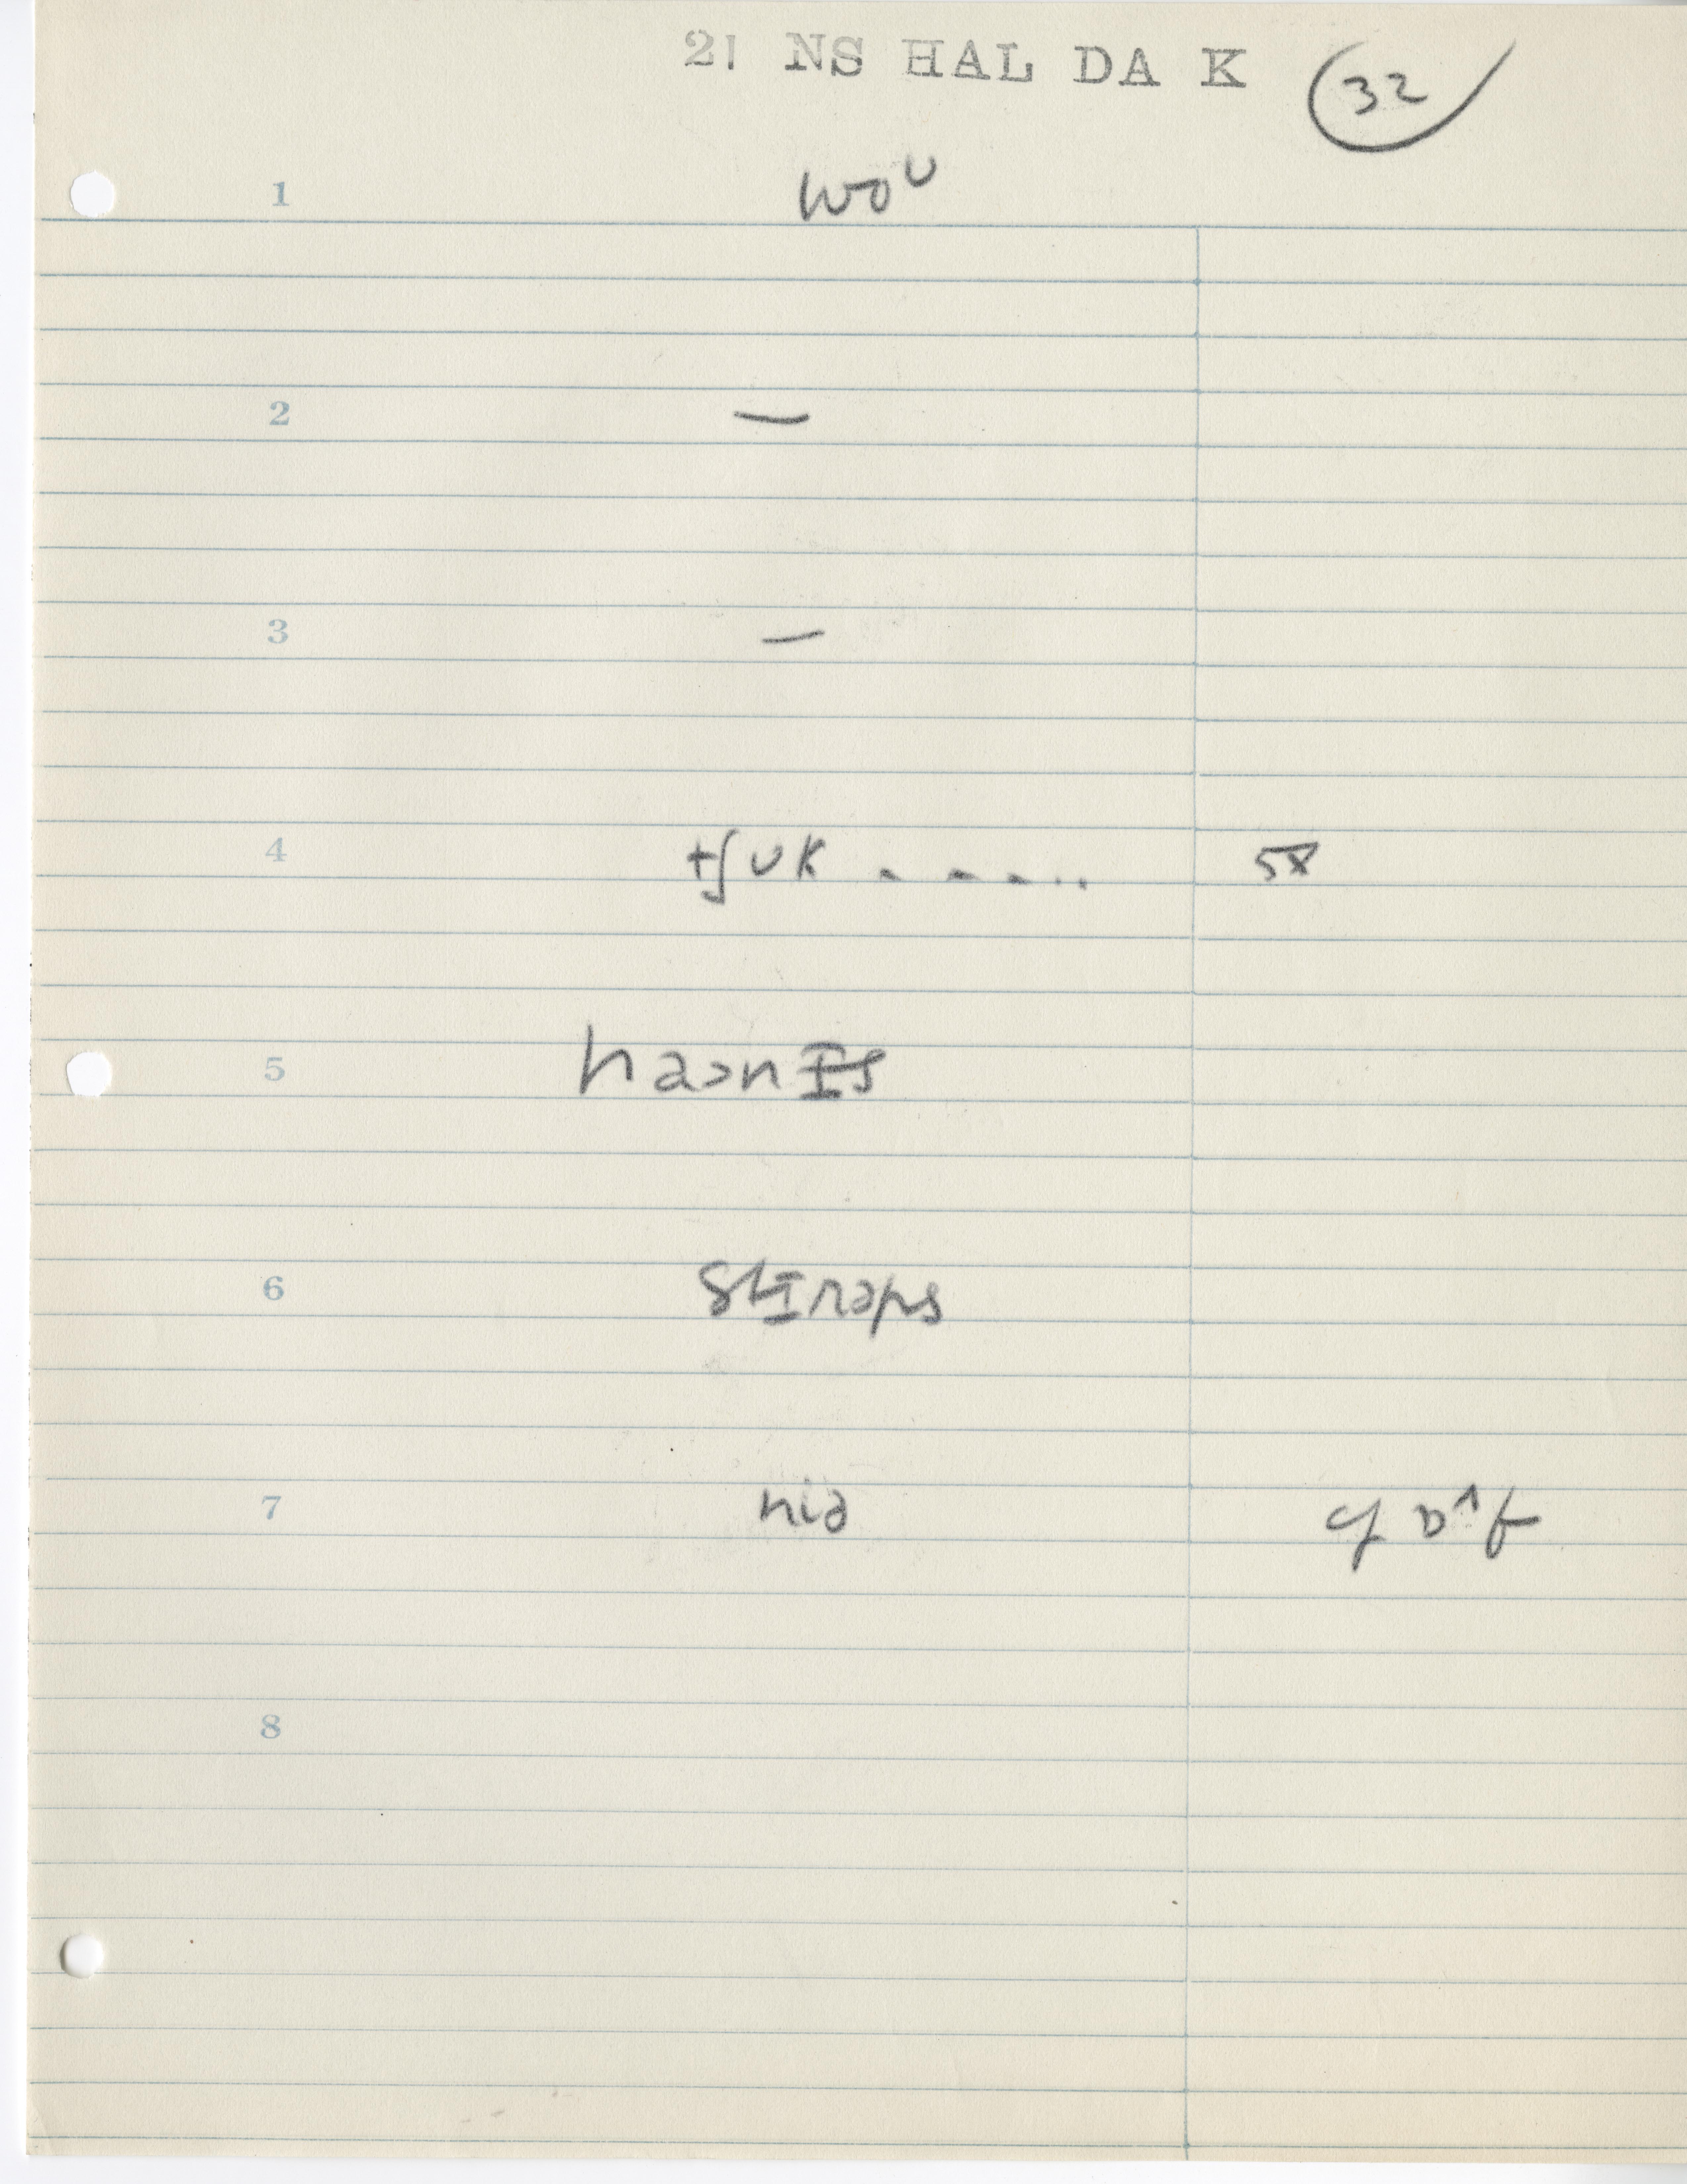 21 NS HAL DA K 32
1 woᴜ
2 —
3 —
4 tʃʊk . - - - . . 5x
5 haɔnɪs
6 stɪrəps
7 niə cf D^f
8